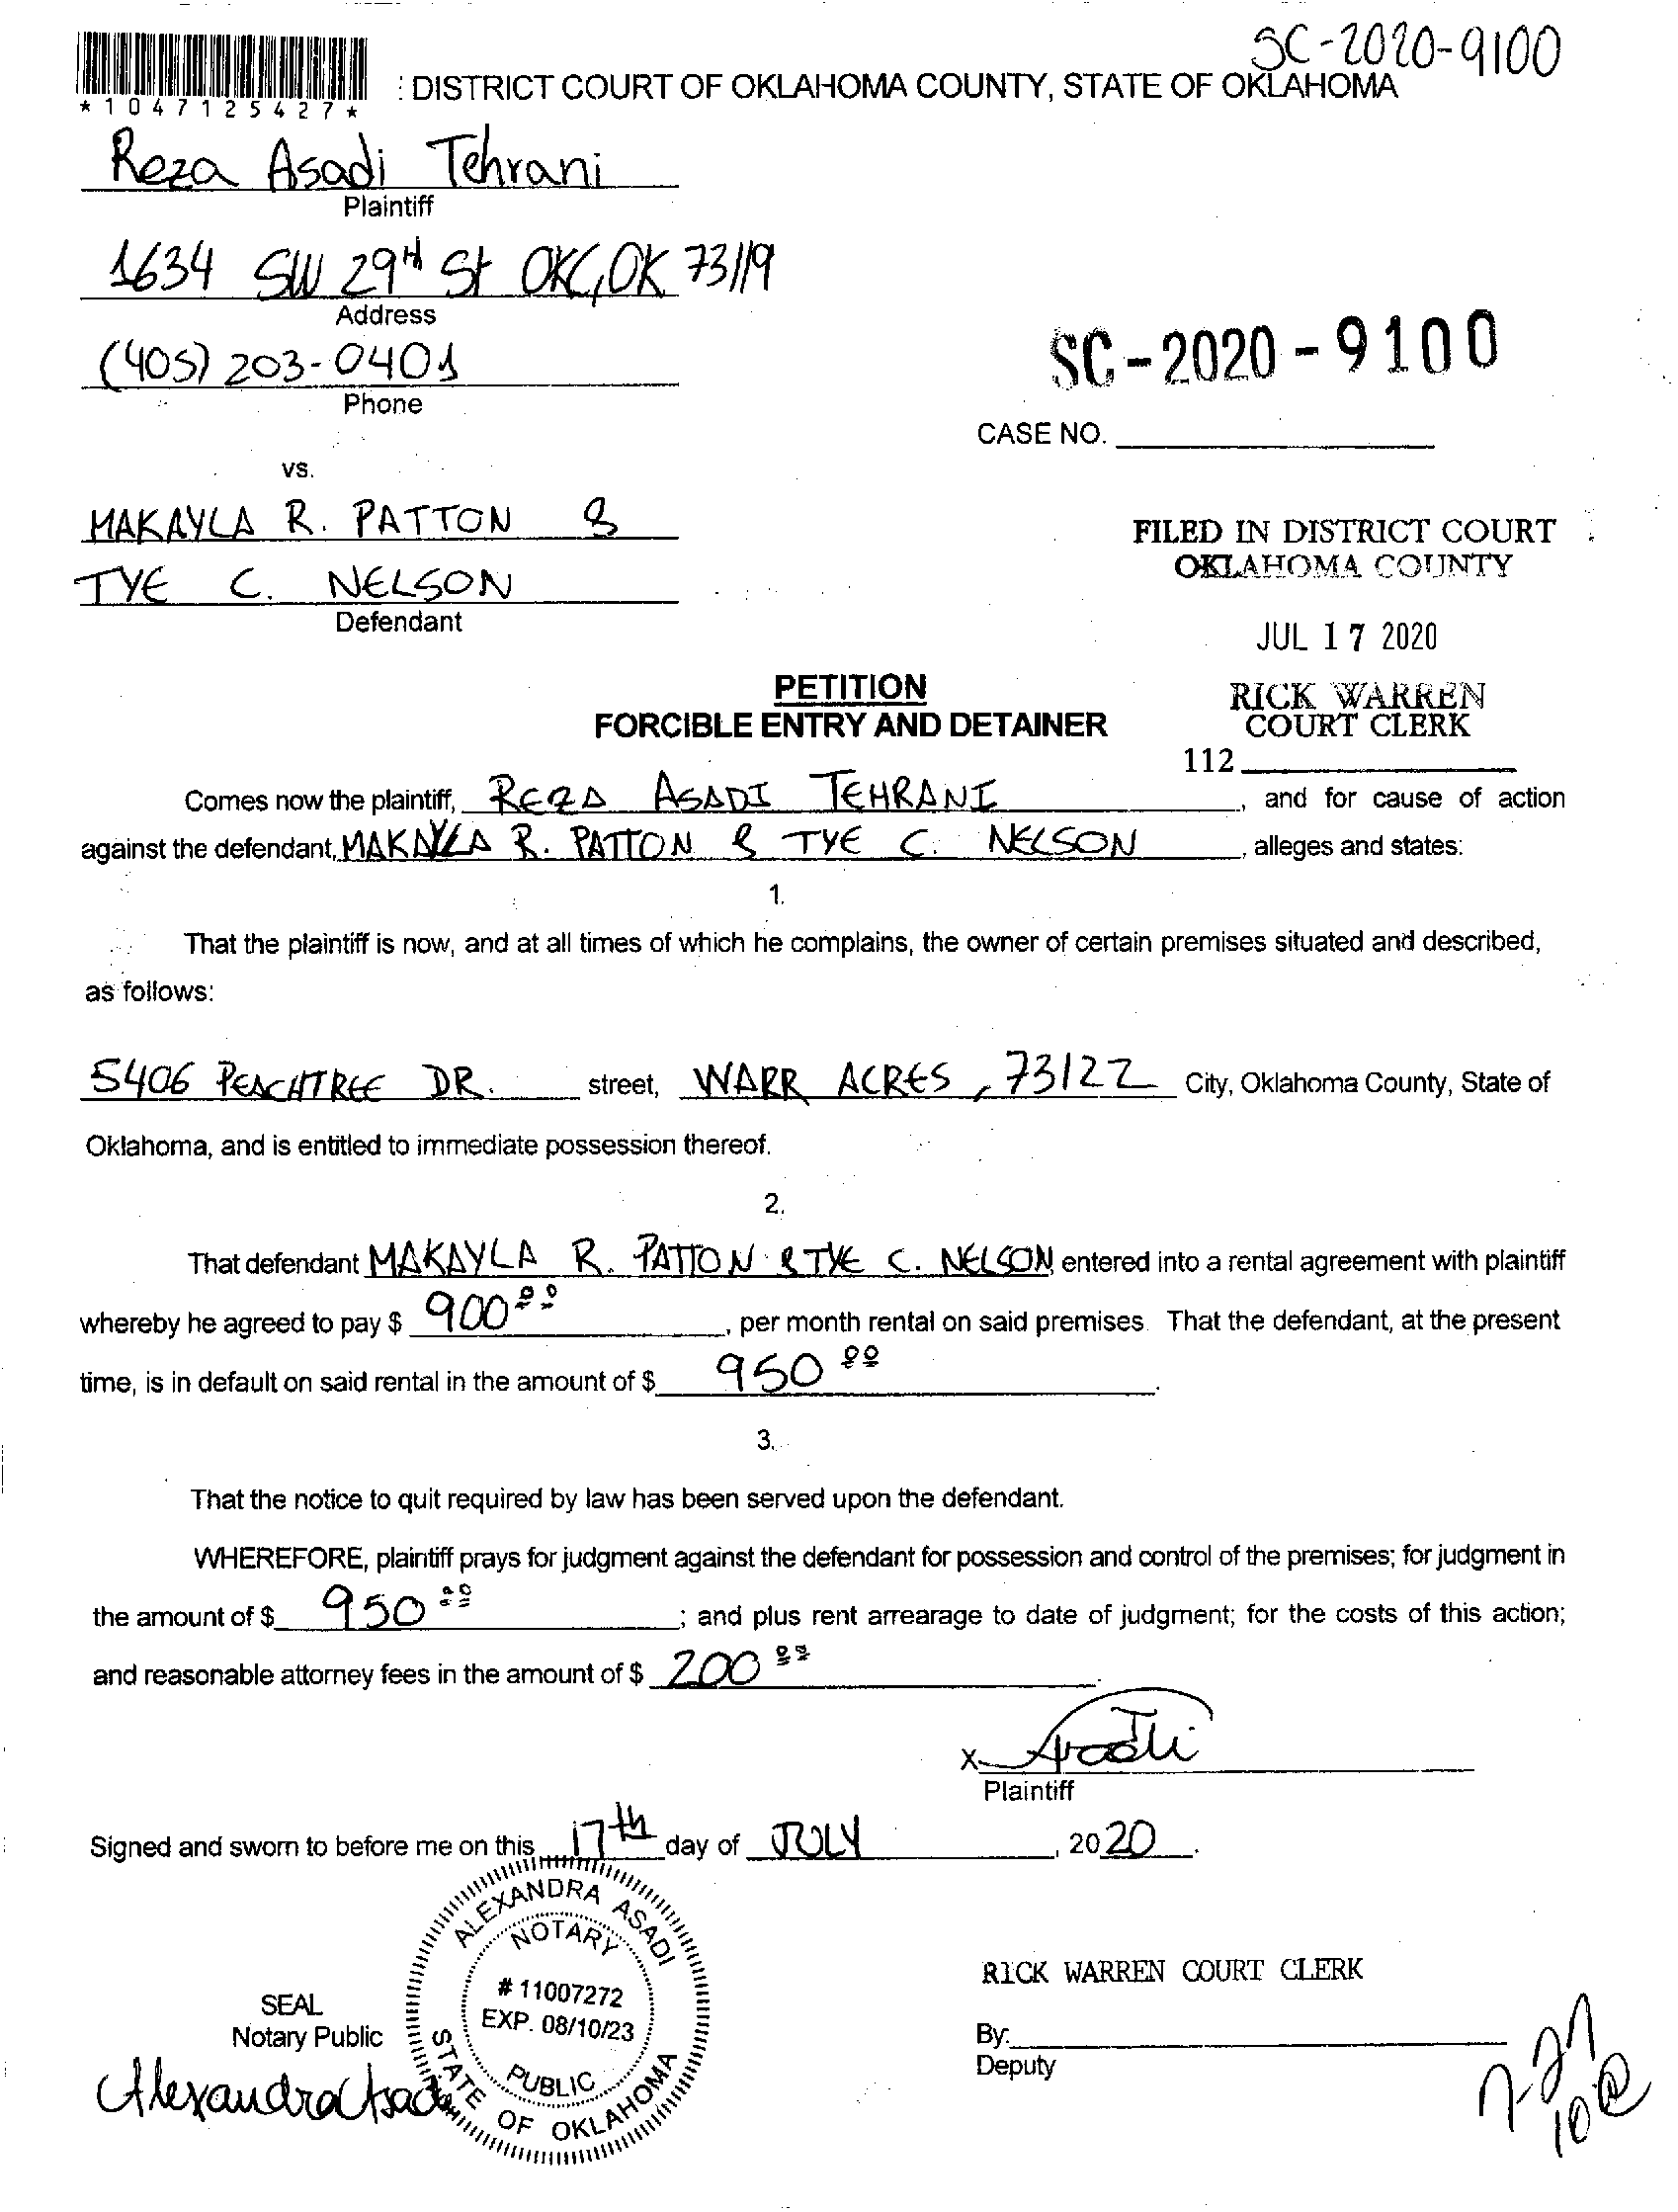 SC-2020-9100
*1047125427*
: DISTRICT COURT OF OKLAHOMA COUNTY, STATE OF OKLAHOMA
Reza Asadi Tehrani
Plaintiff
1634 SW 29th St OKC, OK 73119
Address
(405) 203-0401
Phone
SC-2020-9100
CASE NO.
vs.
MAKAYLA R. PATTON &
TYE C. NELSON
Defendant
FILED IN DISTRICT COURT
OKLAHOMA COUNTY
JUL 17 2020
RICK WARREN
COURT CLERK
112
PETITION
FORCIBLE ENTRY AND DETAINER
Comes now the plaintiff, REZA ASADI TEHRANI, and for cause of action
against the defendant, MAKAYLA R. PATTON & TYE C. NELSON, alleges and states:
1.
That the plaintiff is now, and at all times of which he complains, the owner of certain premises situated and described,
as follows:
5406 PEACHTREE DR. street, WARR ACRES, 73122 City, Oklahoma County, State of
Oklahoma, and is entitled to immediate possession thereof.
2.
That defendant MAKAYLA R. PATTON & TYE C. NELSON, entered into a rental agreement with plaintiff
whereby he agreed to pay $ 900.00, per month rental on said premises. That the defendant, at the present
time, is in default on said rental in the amount of $ 950.00.
3.
That the notice to quit required by law has been served upon the defendant.
WHEREFORE, plaintiff prays for judgment against the defendant for possession and control of the premises; for judgment in
the amount of $ 950.00; and plus rent arrearage to date of judgment; for the costs of this action;
and reasonable attorney fees in the amount of $ 200.00.
X
Plaintiff
Signed and sworn to before me on this 17th day of JULY, 2020.
ALEXANDRA ASADI
NOTARY
# 11007272
EXP. 08/10/23
PUBLIC
STATE OF OKLAHOMA
SEAL
Notary Public
Alexandra Asadi
RICK WARREN COURT CLERK
By:
Deputy